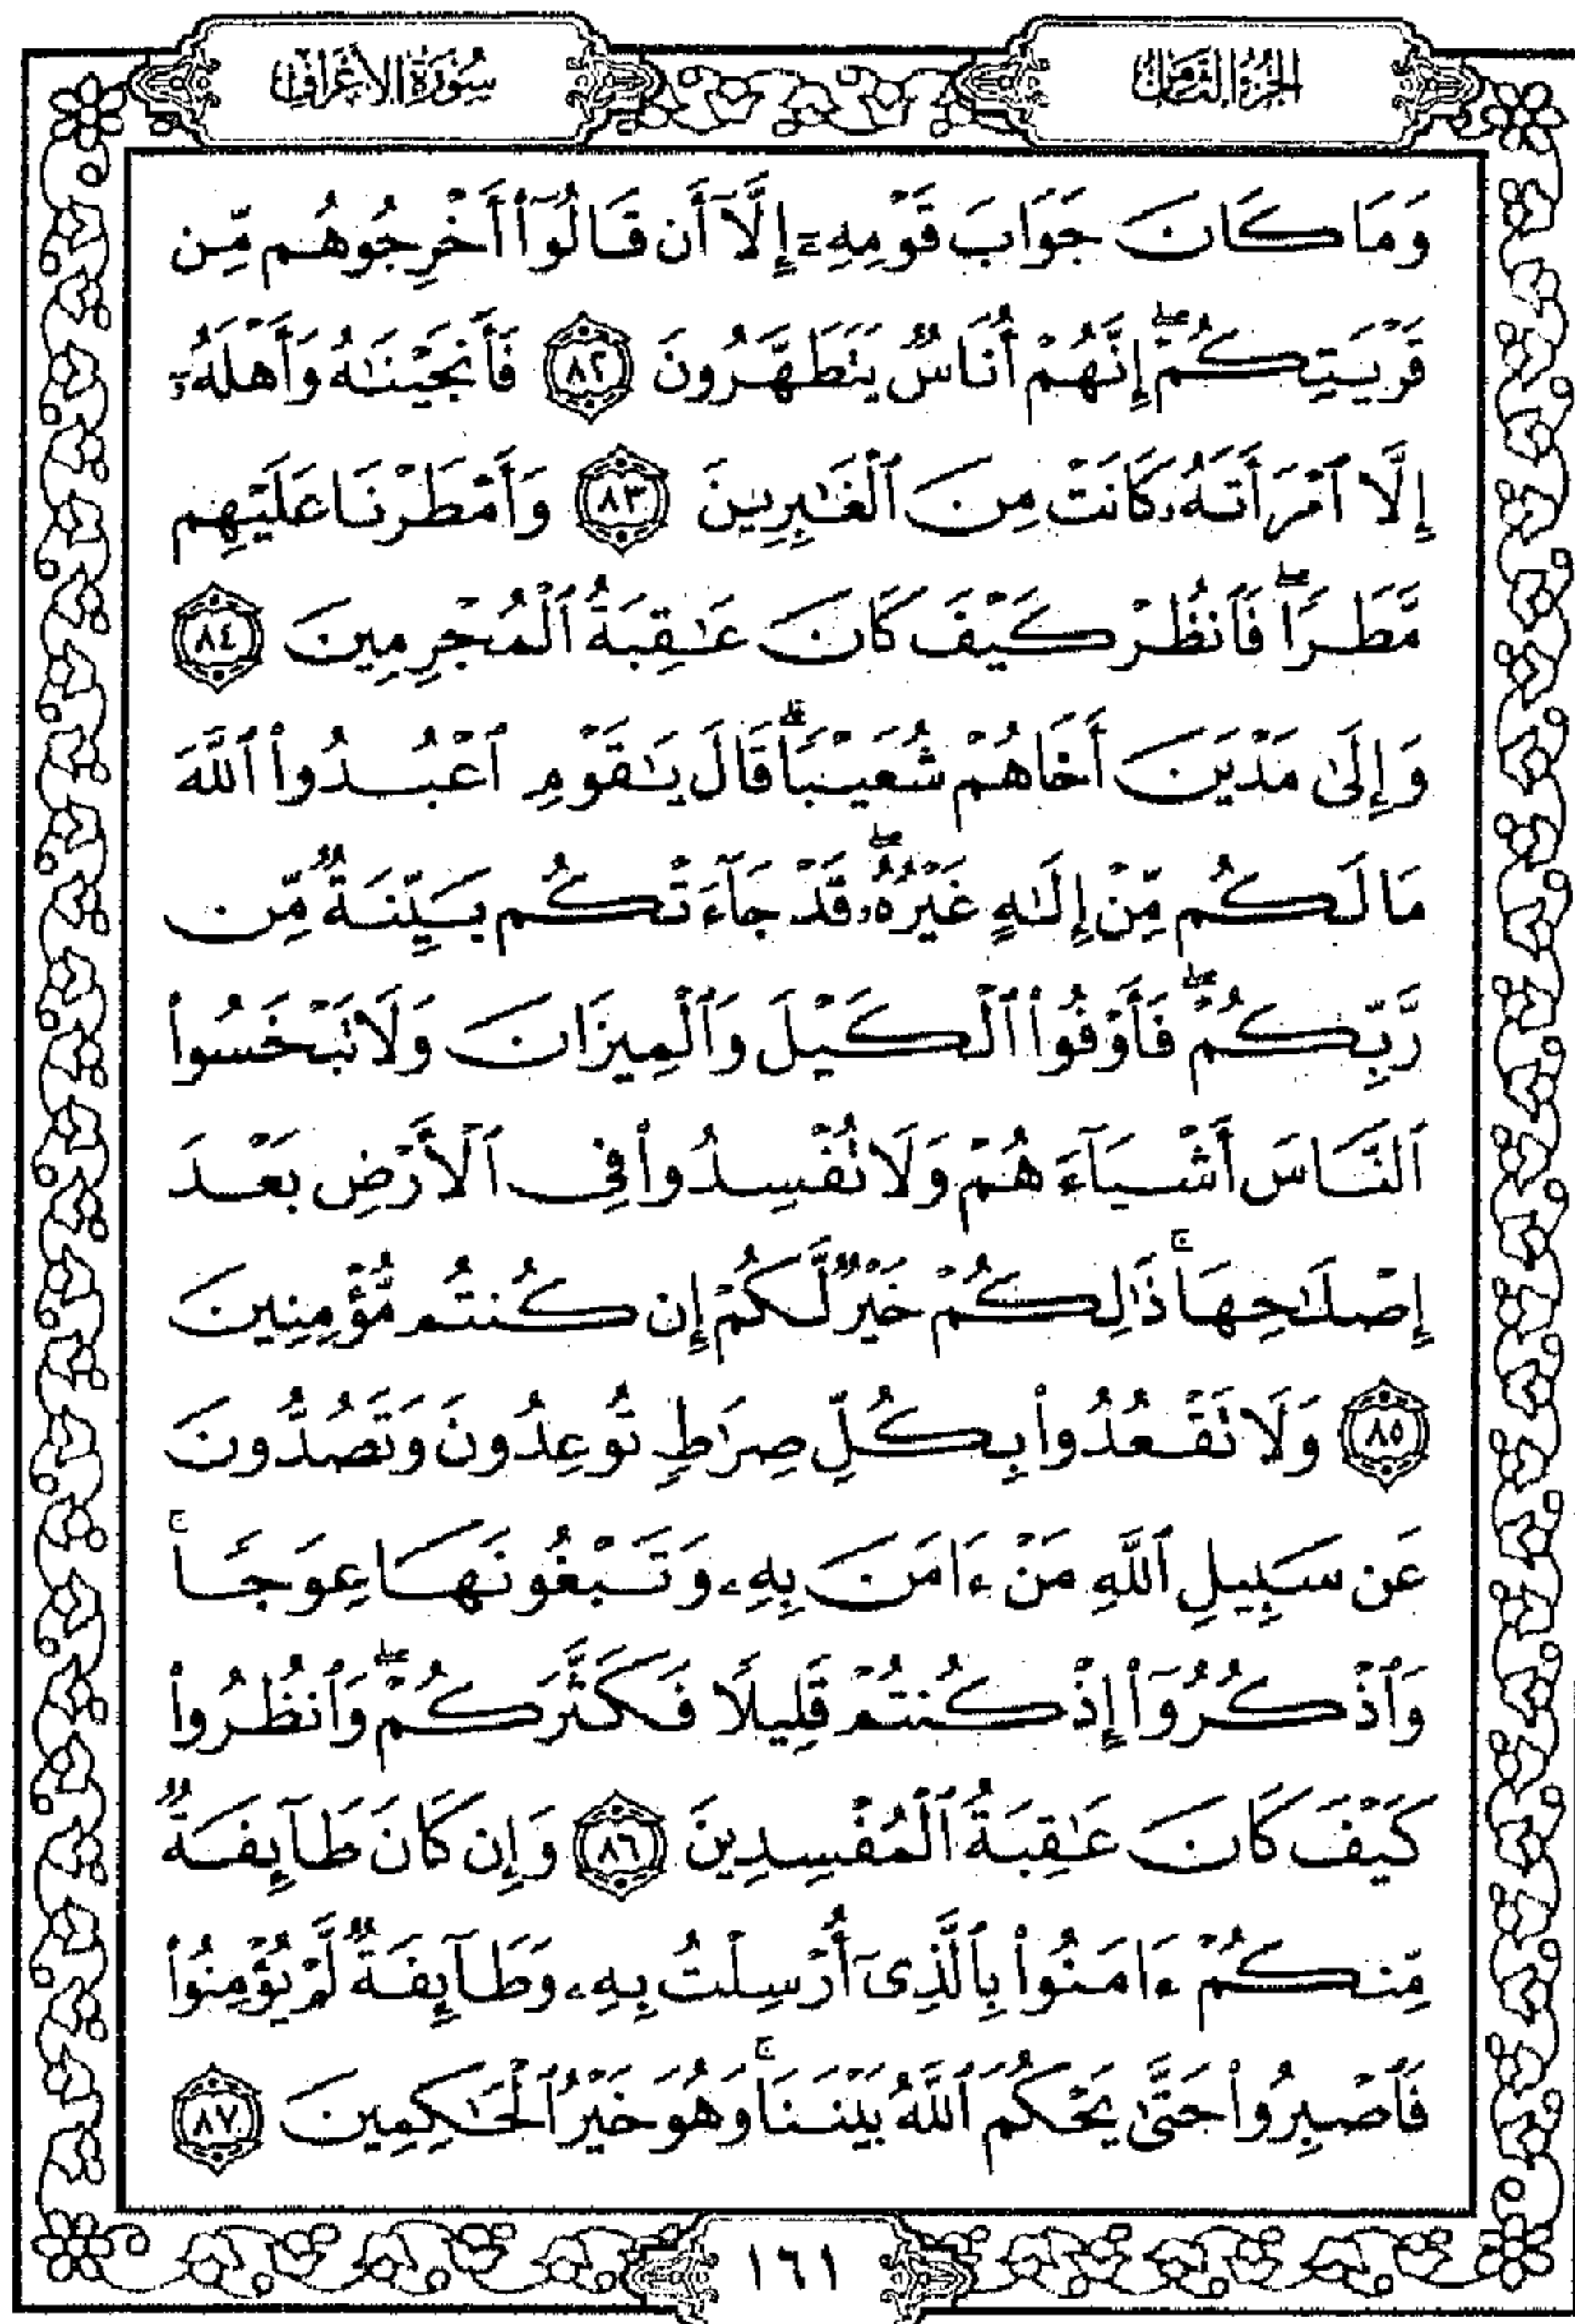 الجزء الثامن
سورة الأعراف
وَمَا كَانَ جَوَابَ قَوْمِهِۦٓ إِلَّآ أَن قَالُوٓا۟ أَخْرِجُوهُم مِّن
قَرْيَتِكُمْ ۖ إِنَّهُمْ أُنَاسٌ يَتَطَهَّرُونَ ﴿٨٢﴾ فَأَنجَيْنَٰهُ وَأَهْلَهُۥٓ
إِلَّا ٱمْرَأَتَهُۥ كَانَتْ مِنَ ٱلْغَٰبِرِينَ ﴿٨٣﴾ وَأَمْطَرْنَا عَلَيْهِم
مَّطَرًا ۖ فَٱنظُرْ كَيْفَ كَانَ عَٰقِبَةُ ٱلْمُجْرِمِينَ ﴿٨٤﴾
وَإِلَىٰ مَدْيَنَ أَخَاهُمْ شُعَيْبًا ۗ قَالَ يَٰقَوْمِ ٱعْبُدُوا۟ ٱللَّهَ
مَا لَكُم مِّنْ إِلَٰهٍ غَيْرُهُۥ ۖ قَدْ جَآءَتْكُم بَيِّنَةٌ مِّن
رَّبِّكُمْ ۖ فَأَوْفُوا۟ ٱلْكَيْلَ وَٱلْمِيزَانَ وَلَا تَبْخَسُوا۟
ٱلنَّاسَ أَشْيَآءَهُمْ وَلَا تُفْسِدُوا۟ فِى ٱلْأَرْضِ بَعْدَ
إِصْلَٰحِهَا ۚ ذَٰلِكُمْ خَيْرٌ لَّكُمْ إِن كُنتُم مُّؤْمِنِينَ
﴿٨٥﴾ وَلَا تَقْعُدُوا۟ بِكُلِّ صِرَٰطٍ تُوعِدُونَ وَتَصُدُّونَ
عَن سَبِيلِ ٱللَّهِ مَنْ ءَامَنَ بِهِۦ وَتَبْغُونَهَا عِوَجًا ۚ
وَٱذْكُرُوٓا۟ إِذْ كُنتُمْ قَلِيلًا فَكَثَّرَكُمْ ۖ وَٱنظُرُوا۟
كَيْفَ كَانَ عَٰقِبَةُ ٱلْمُفْسِدِينَ ﴿٨٦﴾ وَإِن كَانَ طَآئِفَةٌ
مِّنكُمْ ءَامَنُوا۟ بِٱلَّذِىٓ أُرْسِلْتُ بِهِۦ وَطَآئِفَةٌ لَّمْ يُؤْمِنُوا۟
فَٱصْبِرُوا۟ حَتَّىٰ يَحْكُمَ ٱللَّهُ بَيْنَنَا ۚ وَهُوَ خَيْرُ ٱلْحَٰكِمِينَ ﴿٨٧﴾
١٦١